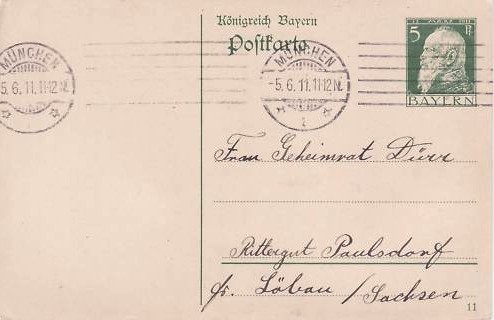 Königreich Bayern
Postkarte
5 Pf.
BAYERN
MÜNCHEN
5.6.11.11-12N.
1
MÜNCHEN
-5.6.11.11-12N.
1
Frau Geheimrat Dürr
Rittergut Paulsdorf
fr. Löbau / Sachsen
11